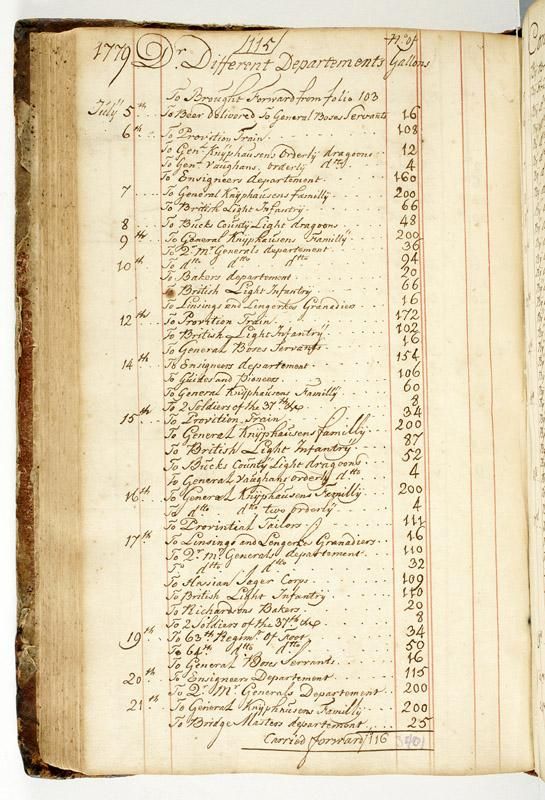 1779 Dr. Different Departements /115/ No. of Gallons
To Brought Forward from folio 103
July 5th To Beer Delivered To General Boses Servants 16
6th To Provition Train 108
To Genl Knÿphausens Orderlÿ dragoons 12
To Genl Vaughans, orderlÿ dtto 4
To Ensigneers departement 160
7 To General Knÿphausens familly 200
To British Light Infantrÿ 66
8 To Bucks County Light dragoons 48
9th To General Knuphausens Familly 200
To 2r Mr Generals departement 36
10th To dtto dtto dtto 94
To Bakers departement 20
To British Light Infantry 66
To Linsings and Lingerkes Granadiers 16
12th To Provition Train 172
To British Light Infantrÿ 102
To General Boses Servants 16
14th To Ensigneers departement 154
To Guides and Pioneers 106
To General Knÿphausens Familly 60
To 2 Soldiers of the 37th &c 8
15th To Provition Train 34
To General Knÿphausens familly 200
To British Light Infantrÿ 87
To Bucks County Light dragoons 52
To General Vaughans orderlÿ dtto 4
16th To General Knÿphausens Familly 200
To dtto dtto two orderlÿ 4
To Provintial Tailors 111
17th To Linsings and Lengerkes Granadiers 16
To 2r Mr Generals departement 110
To dtto dtto 32
To Hassian Jager Corps 109
To British Light Infantry 110
To Richardsons Bakers 20
To 2 Soldiers of the 37th &c 8
19th To 63th Regimt Of foot 34
To 64th dtto dtto 50
To General Boses Servants 16
20th To Ensigneers Departement 115
To 2r Mr Generals Departement 200
21th To General Knÿphausens Familly 200
To Bridge Masters departement 25
Carried forward /116 3401